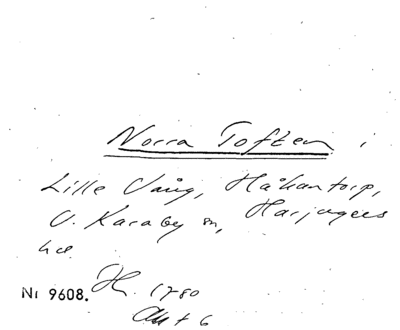 Norra Toften i
Lille Vång, Håkantorp,
V. Karaby sn, Harjagers
hd
Nr 9608. H. 1780
Akt 6